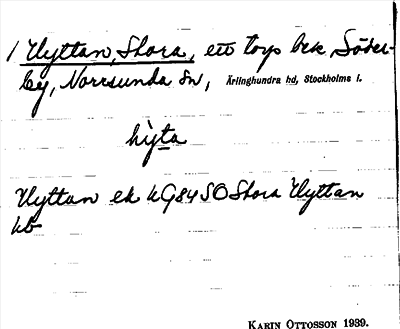 1 Hyttan, Stora, ett torp bek. Söder-
by, Norrsunda sn, Ärlinghundra hd, Stockholms l.
hy̍ta
Hyttan ek KG84SO Stora Hyttan
kb
KARIN OTTOSSON 1939.